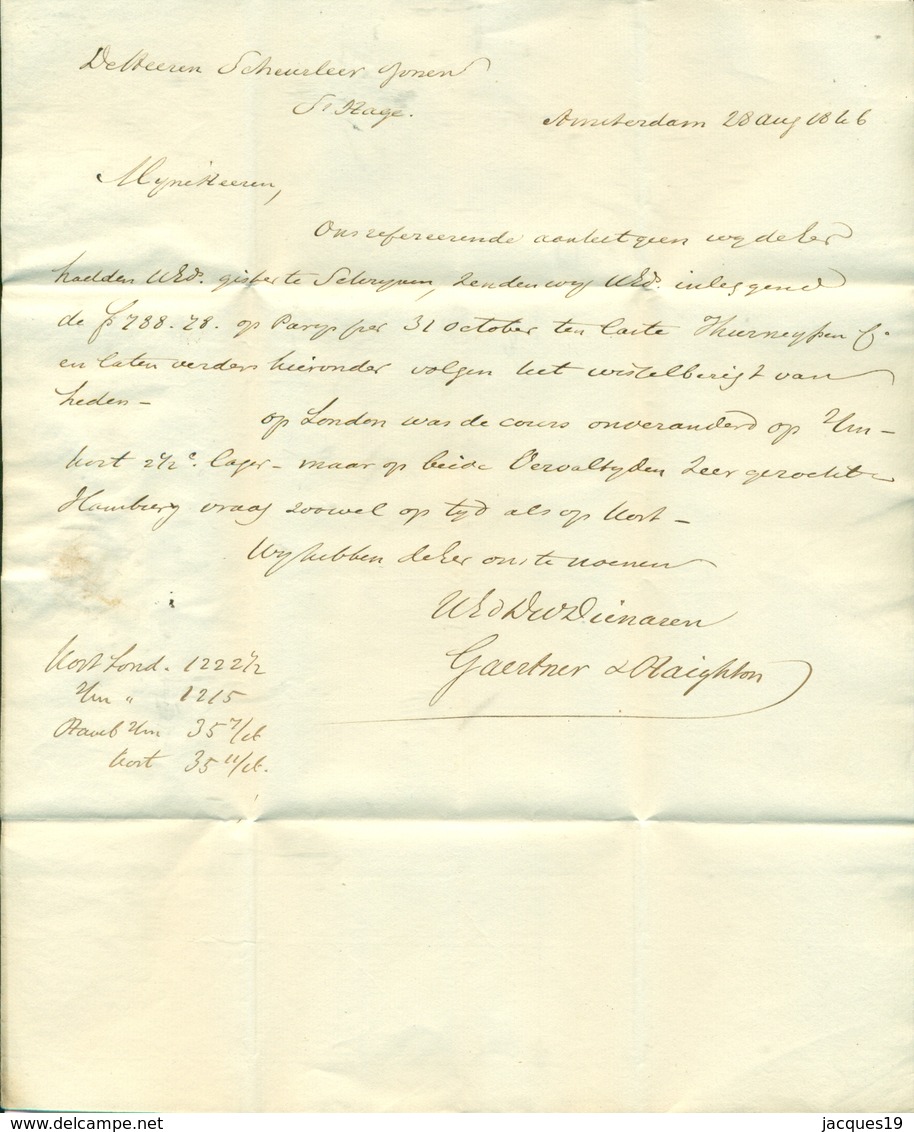 De Heeren Scheurleer Zonen
's Hage.
Amsterdam 28 aug 1846
Mijne Heeren,
Ons refereerende aan het geen wy de Eer
hadden UEd. gister te Schryven, zenden wy UEd. inleggend
de 788.78. op Parys per 31 october ten laste Thurneyssen Co
en laten verders hieronder volgen het wisselberigt van
heden –
op London was de cours onveranderd op 2/m –
kort 2½ c. lager – maar op beide Vervaltyden zeer gezocht –
Hamburg vraag zoowel op tyd als op Kort –
Wy hebben de Eer ons te noemen
UEd DW Dienaren
Gaertner & Haighton
Kort Lond. 1222½
2/m " 1215
Hamb 2/m 35 7/16
Kort 35 11/16.
jacques19
www.delcampe.net